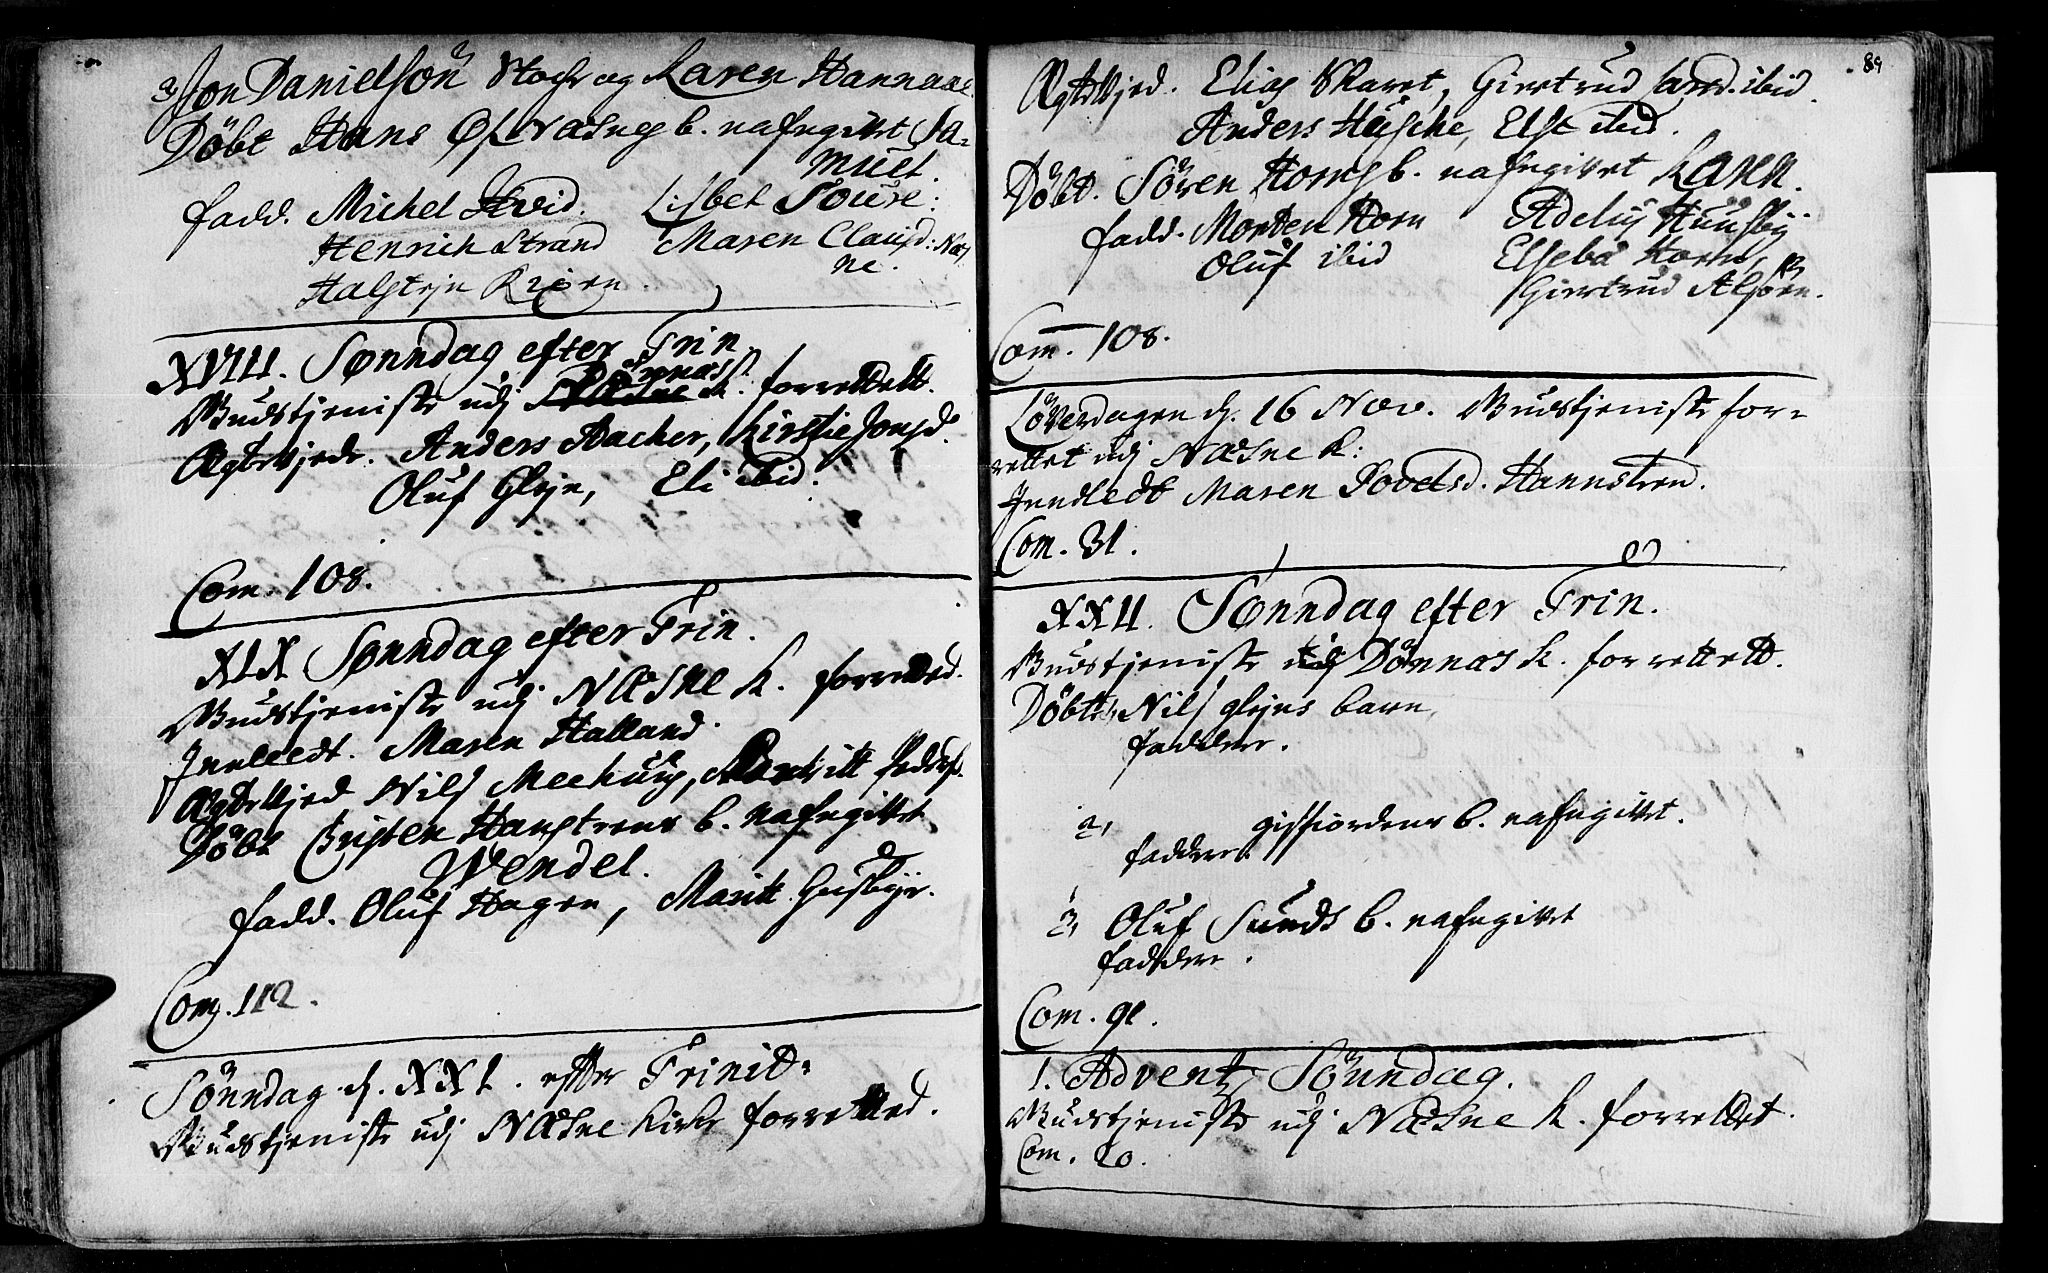 2, Jon Danielsön Stoch og Karen Hannaas.
Döbt Hans Öfnæsnes b. nafngivet Sa-
muel.
fadd. Michel Hvid. Lisbet Soure:
Henrich Strand Maren Clausd: Næs
ne.
Halsten Riøen.
XVIII. Sønndag efter Trin.
Gudstjeniste udj Dönnas K. forrettedt.
Ægtevjede. Anders Aacher, Kirstie Jonsd.
Oluf Glejn, Eli ibid.
Com. 108.
XIX Sønndag efter Trin.
Gudstjeniste udj Næsne K. forretted.
Innledt. Maren Halland.
Ægtevjed Nils Meehuus, Maritt Pedersd.
Döbt Christen Hanstrens b. nafngivet
Wendel.
fadd. Oluf Hagen, Maritt Husbye.
Com. 112.
Sönndag d. XXI. efter Trinit:
Gudstjeniste udj Næsne Kirke forretted.
89
Ægtevjed. Elias Skaret, Giertrud Larsd. ibid.
Anders Husche, Elst ibid.
Döbt. Sören Horns b. nafngivet Karen.
fadd. Morten Horn Adelus Huusby
Oluf ibid Elsebe Horn,
Giertrud Alsøen.
Com. 108.
Löverdagen d. 16 Nov. Gudstjeniste for-
rettet udj Næsne K:
Innledt Maren Povelsd. Hannstren.
Com. 31.
XXII. Sønndag efter Trin.
Gudstjeniste udj Dönnas K. forrettett.
Döbt 1, Nils glejns barn,
faddere.
2, gisfiordens b. nafngivet.
faddere.
3, Oluf Sunds b. nafngivet
faddere.
Com. 91.
1. Advents Sönndag.
Gudstjeniste udj Næsne K. forrettet.
Com. 20.